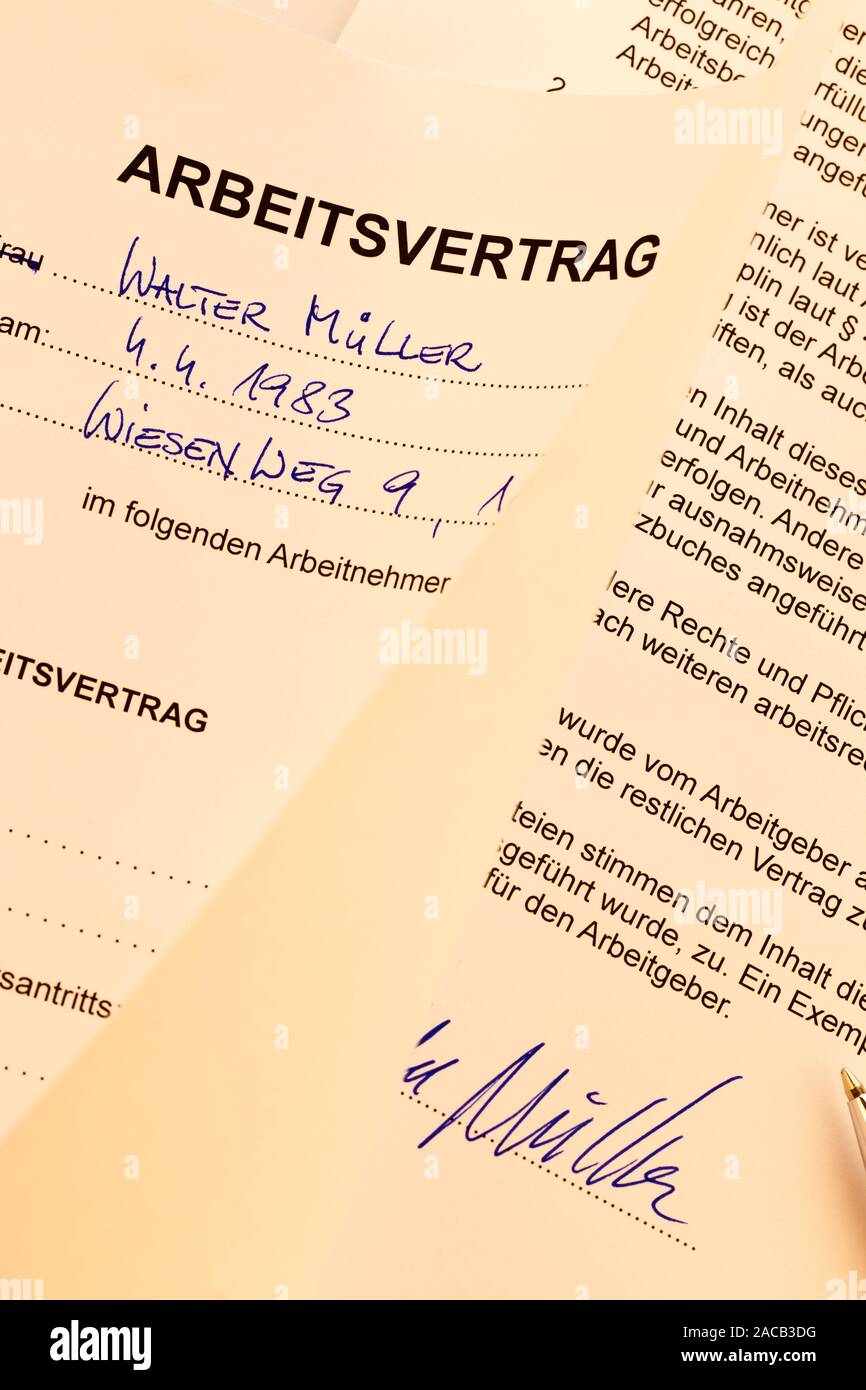 ARBEITSVERTRAG
Frau WALTER MÜLLER
am: 4.4.1983
WIESENWEG 9, 1
im folgenden Arbeitnehmer
EITSVERTRAG
santritts
ahren,
erfolgreich
Arbeitsb
Arbeit
2
die
rfüllu
unger
angefü
ner ist ve
nlich laut A
plin laut §
ist der Arbe
iften, als auc
n Inhalt dieses
und Arbeitnehm
erfolgen. Andere
r ausnahmsweise
zbuches angeführt
lere Rechte und Pflich
ach weiteren arbeitsre
wurde vom Arbeitgeber a
en die restlichen Vertrag zu
teien stimmen dem Inhalt die
geführt wurde, zu. Ein Exemp
für den Arbeitgeber.
Müller
alamy
Image ID: 2ACB3DG
www.alamy.com